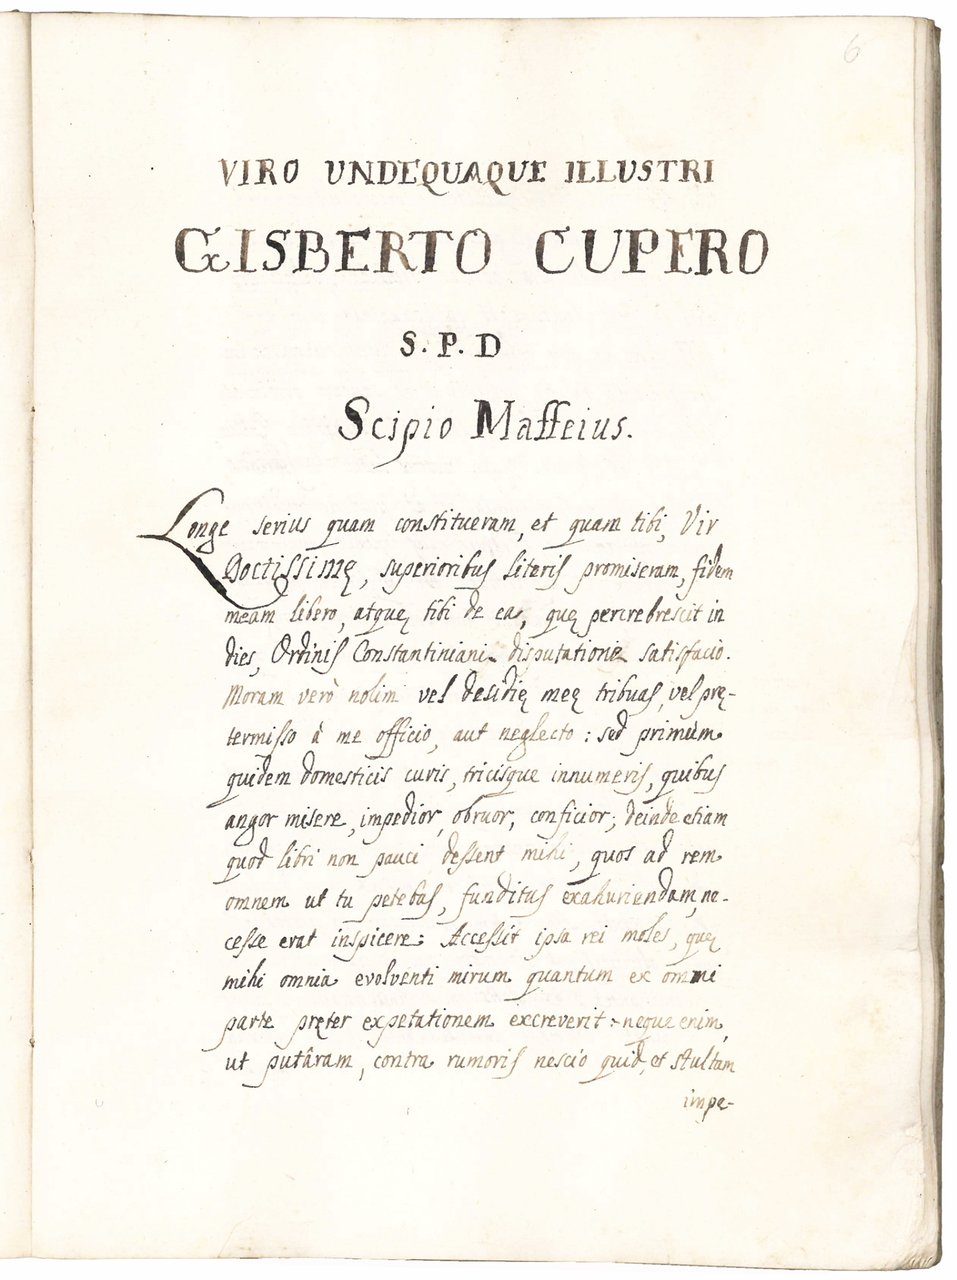 6
VIRO UNDEQUAQUE ILLUSTRI
GISBERTO CUPERO
S. P. D
Scipio Maffeius.
Longe serius quam constitueram, et quam tibi, Vir
Doctissimę, superioribus literis promiseram, fidem
meam libero, atquę tibi de ea, quę percrebrescit in
dies, Ordinis Constantiniani disputatione satisfacio.
Moram verò nolim vel desidię meę tribuas, vel prę-
termisso à me officio, aut neglecto: sed primùm
quidem domesticis curis, tricisque innumeris, quibus
angor misere, impedior, obruor, conficior; deinde etiam
quod libri non pauci dessent mihi, quos ad rem
omnem ut tu petebas, funditus exahuriendam, ne-
cesse erat inspicere: Accessit ipsa rei moles, quę
mihi omnia evolventi mirum quantum ex omni
parte pręter expetationem excreverit: neque enim,
ut putâram, contra rumoris nescio quid, et stultam
impe-